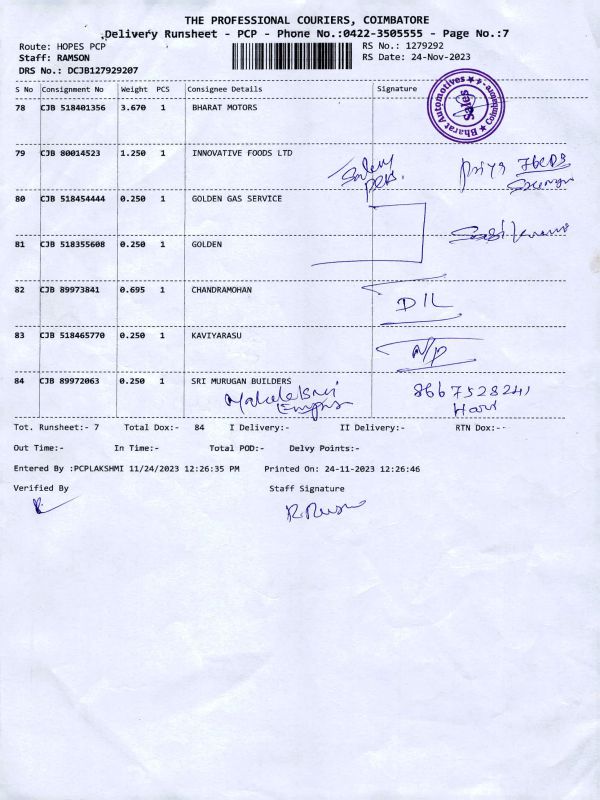 THE PROFESSIONAL COURIERS, COIMBATORE
Delivery Runsheet - PCP - Phone No.:0422-3505555 - Page No.:7
Route: HOPES PCP RS No.: 1279292
Staff: RAMSON RS Date: 24-Nov-2023
DRS No.: DCJB127929207
S No Consignment No Weight PCS Consignee Details Signature
78 CJB 518401356 3.670 1 BHARAT MOTORS
Bharat Automotives
Sales
79 CJB 80014523 1.250 1 INNOVATIVE FOODS LTD
Priya
80 CJB 518454444 0.250 1 GOLDEN GAS SERVICE
81 CJB 518355608 0.250 1 GOLDEN
82 CJB 89973841 0.695 1 CHANDRAMOHAN
D/L
83 CJB 518465770 0.250 1 KAVIYARASU
N/P
84 CJB 89972063 0.250 1 SRI MURUGAN BUILDERS
8667528241
Hari
Tot. Runsheet:- 7 Total Dox:- 84 I Delivery:- II Delivery:- RTN Dox:--
Out Time:- In Time:- Total POD:- Delvy Points:-
Entered By :PCPLAKSHMI 11/24/2023 12:26:35 PM Printed On: 24-11-2023 12:26:46
Verified By Staff Signature